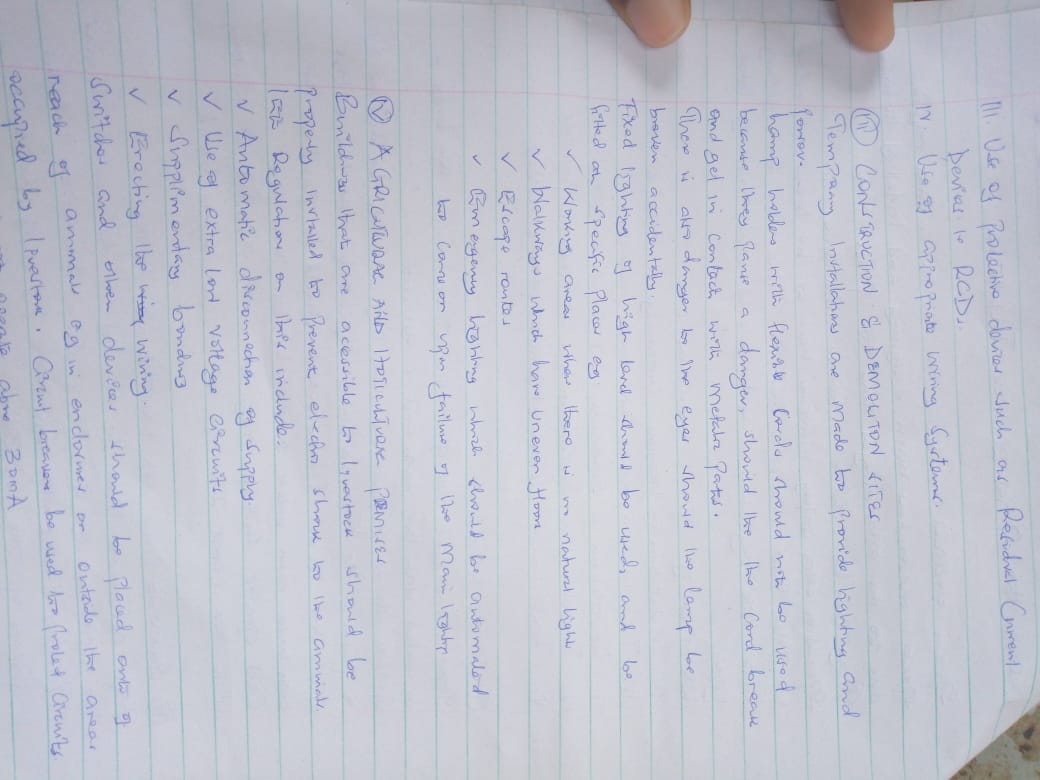 III. Use of Protective devices such as Residual Current
Devices ie RCDs.
IV. Use of appropriate wiring Systems.
(III) CONSTRUCTION & DEMOLITION SITES
Tempary Installations are made to provide lighting and
power.
Lamp holders with flexible Cords should not be used
because they pose a danger, should the the Cord break
and get in contact with metalic parts.
There is also danger to the eyes should the lamp be
broken accidentally.
Fixed lighting of high level should be used, and be
fitted at specific places eg
✓ Working areas where there is no natural light
✓ Walkways which have uneven floors
✓ Escape routes
✓ Emergency lighting which should be automated
to come on upon failure of the main lights
(IV) AGRICULTURE AND HORTICULTURE PREMISES
Buildings that are accessible to livestock should be
properly installed to prevent electric shock to the animals.
IEE Regulation on this include.
✓ Automatic disconnection of supply.
✓ Use of extra low voltage circuits
✓ Supplimentary bonding
✓ Erecting the wiring.
Switches and other devices should be placed out of
reach of animals eg in enclosures or outside the areas
occupied by livestock. Circuit breakers be used to protect circuits
operate above 30mA